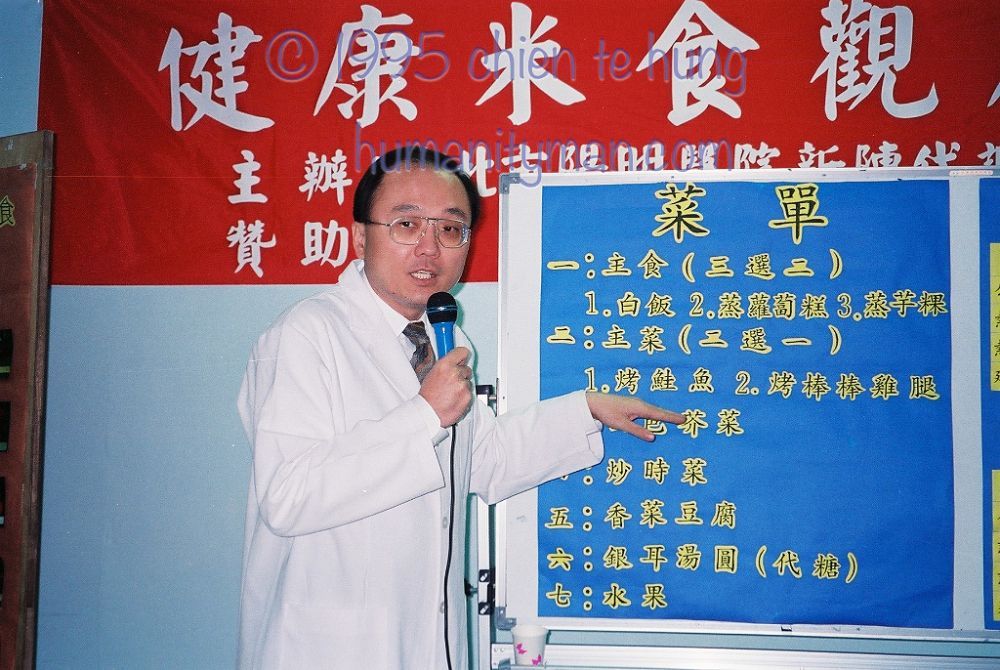 健康米食觀
© 1995 chien te hung
humanityman.com
主辦 北市陽明醫院新陳代
贊助
食
菜單
一：主食(三選二)
1.白飯 2.蒸蘿蔔糕 3.蒸芋粿
二：主菜(二選一)
1.烤鮭魚 2.烤棒棒雞腿
芥菜
炒時菜
五：香菜豆腐
六：銀耳湯圓(代糖)
七：水果